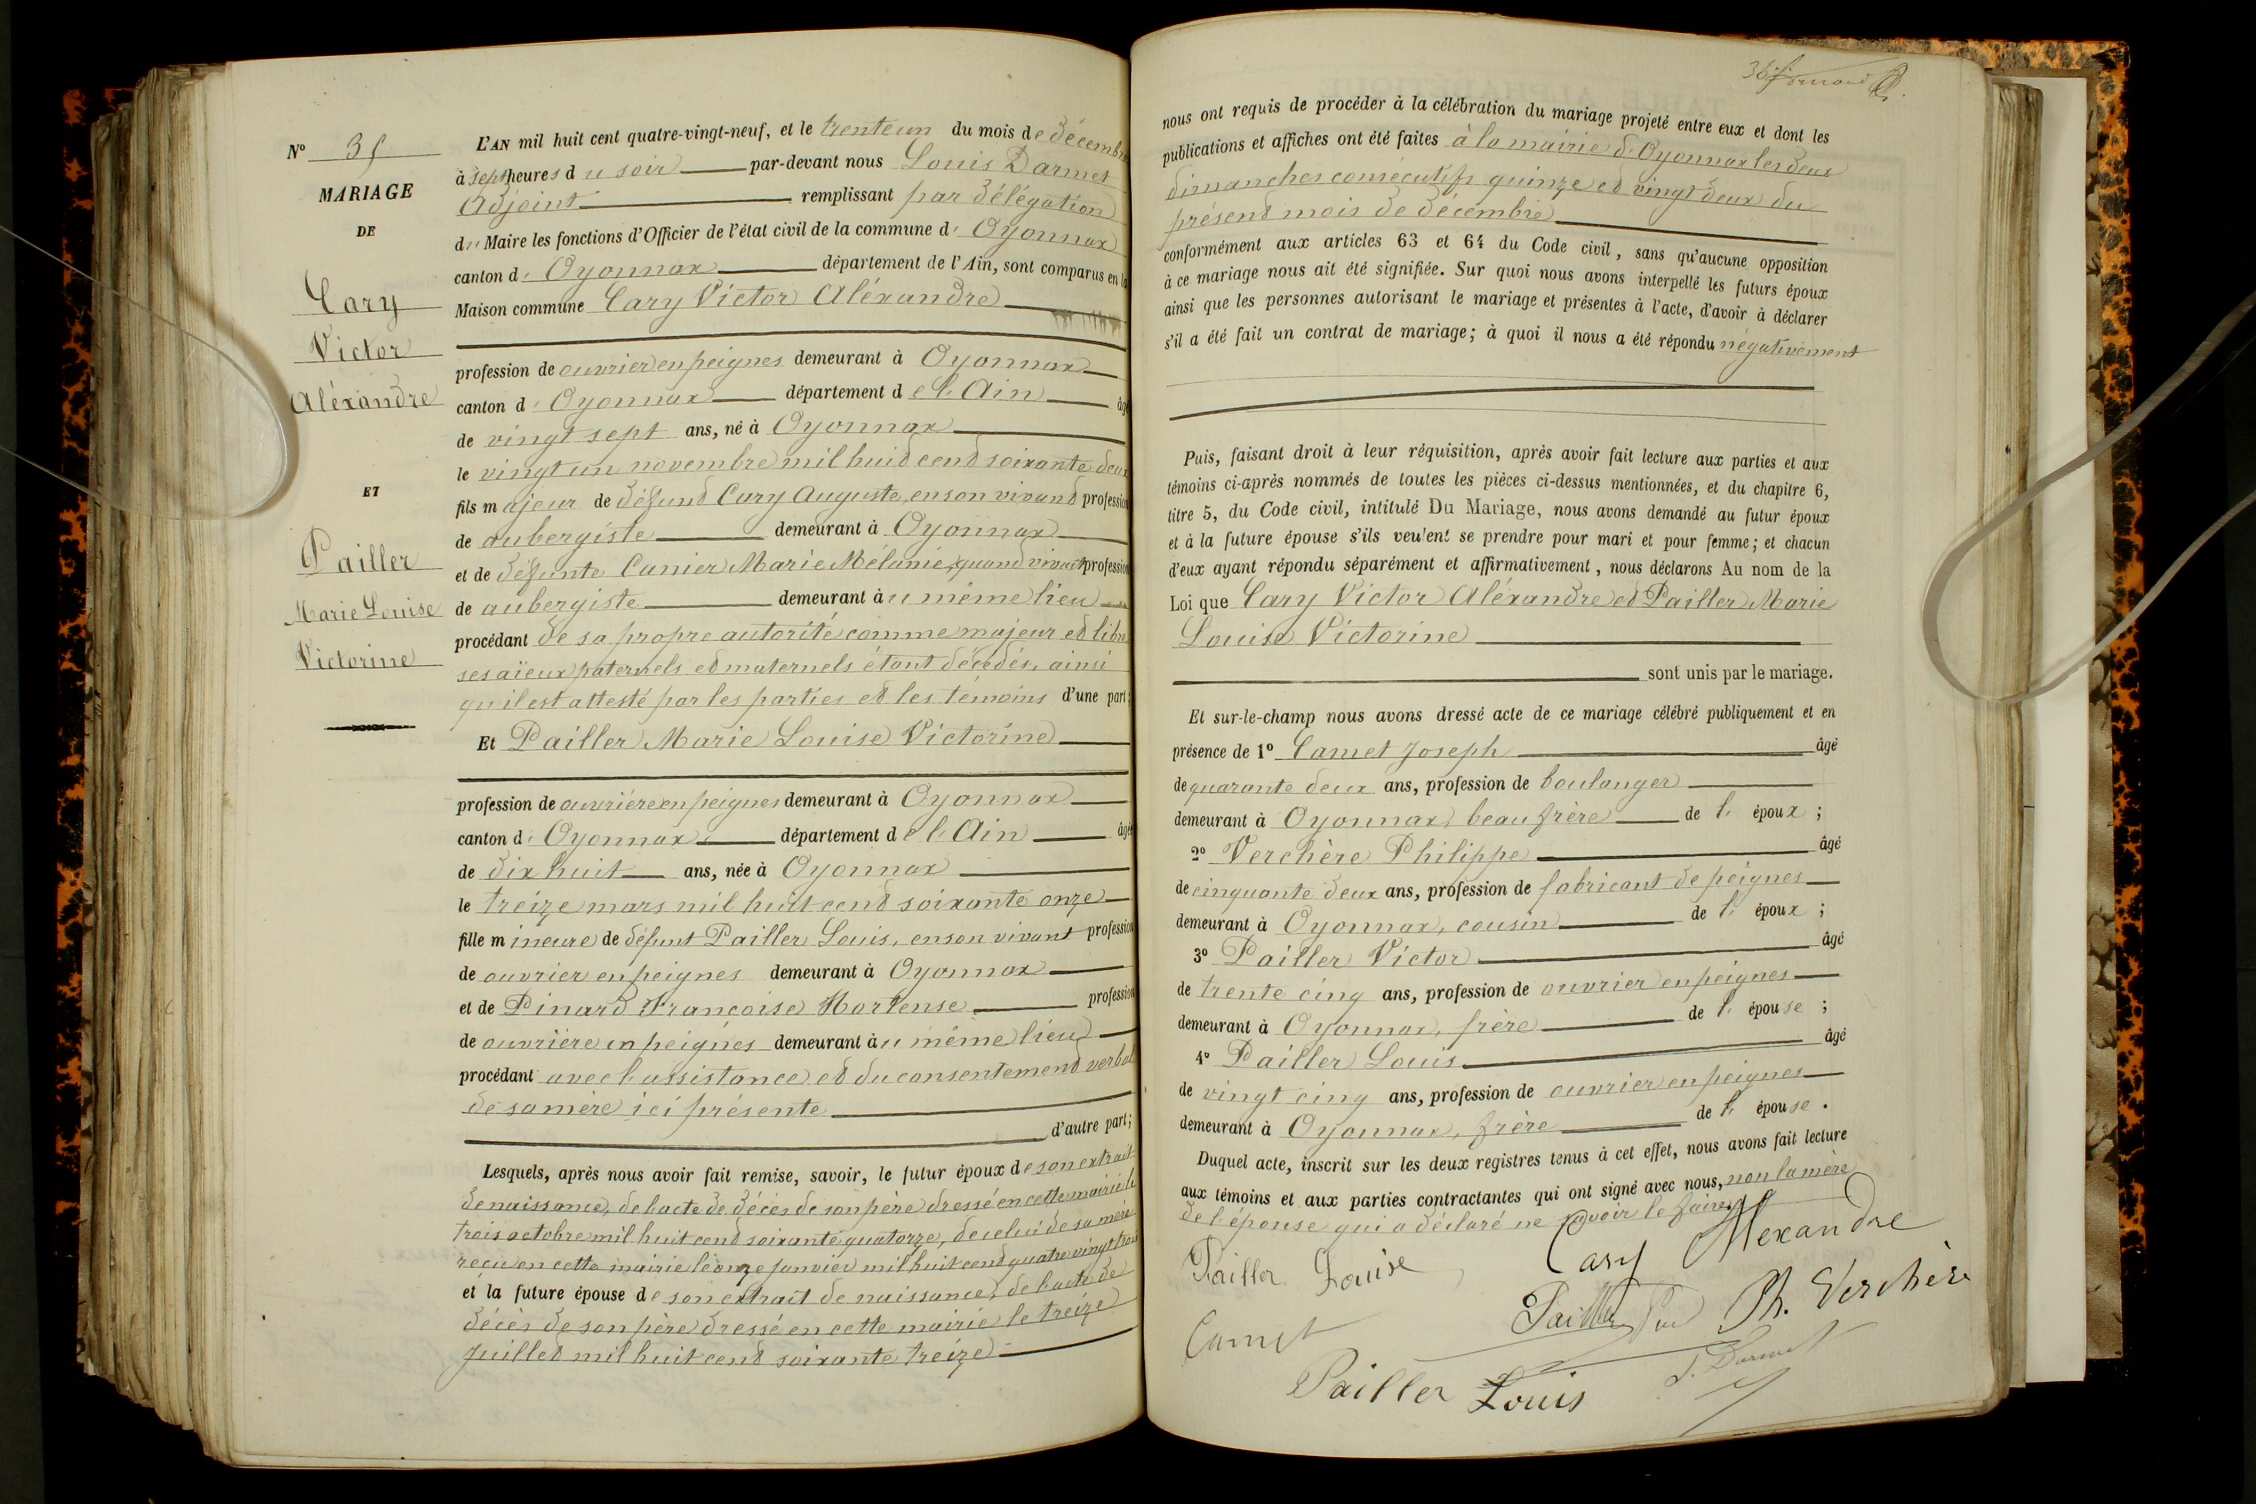 N° 35
MARIAGE
DE
Cary
Victor
Aléxandre
ET
Pailler
Marie Louise
Victorine
L'AN mil huit cent quatre-vingt-neuf, et le trente un du mois de décembre
à sept heures du soir par-devant nous Louis Darmet
Adjoint remplissant par délégation
du Maire les fonctions d'Officier de l'état civil de la commune d' Oyonnax
canton d' Oyonnax département de l'Ain, sont comparus en la
Maison commune Cary Victor Aléxandre
profession de ouvrier en peignes demeurant à Oyonnax
canton d' Oyonnax département de l'Ain âgé
de vingt sept ans, né à Oyonnax
le vingt un novembre mil huit cent soixante deux
fils majeur de défunt Cary Auguste, en son vivant profession
de aubergiste demeurant à Oyonnax
et de défunte Cunier Marie Mélanie, quand vivait profession
de aubergiste demeurant au même lieu
procédant de sa propre autorité comme majeur et libre
ses aïeux paternels et maternels étant décédés, ainsi
qu'il est attesté par les parties et les témoins d'une part;
Et Pailler Marie Louise Victorine
profession de ouvrière en peignes demeurant à Oyonnax
canton d' Oyonnax département de l'Ain âgée
de dix huit ans, née à Oyonnax
le treize mars mil huit cent soixante onze
fille mineure de défunt Pailler Louis, en son vivant profession
de ouvrier en peignes demeurant à Oyonnax
et de Pinard Françoise Hortense profession
de ouvrière en peignes demeurant au même lieu
procédant avec l'assistance et du consentement verbal
de sa mère ici présente
d'autre part;
Lesquels, après nous avoir fait remise, savoir, le futur époux de son extrait
de naissance, de l'acte de décès de son père dressé en cette mairie le
trois octobre mil huit cent soixante quatorze, de celui de sa mère
reçu en cette mairie le onze janvier mil huit cent quatre vingt trois
et la future épouse de son extrait de naissance, de l'acte de
décès de son père dressé en cette mairie le treize
Juillet mil huit cent soixante treize
36
nous ont requis de procéder à la célébration du mariage projeté entre eux et dont les
publications et affiches ont été faites à la mairie d'Oyonnax les deux
dimanches consécutifs quinze et vingt deux du
présent mois de décembre
conformément aux articles 63 et 64 du Code civil, sans qu'aucune opposition
à ce mariage nous ait été signifiée. Sur quoi nous avons interpellé les futurs époux
ainsi que les personnes autorisant le mariage et présentes à l'acte, d'avoir à déclarer
s'il a été fait un contrat de mariage; à quoi il nous a été répondu négativement
Puis, faisant droit à leur réquisition, après avoir fait lecture aux parties et aux
témoins ci-après nommés de toutes les pièces ci-dessus mentionnées, et du chapitre 6,
titre 5, du Code civil, intitulé Du Mariage, nous avons demandé au futur époux
et à la future épouse s'ils veulent se prendre pour mari et pour femme; et chacun
d'eux ayant répondu séparément et affirmativement, nous déclarons Au nom de la
Loi que Cary Victor Aléxandre et Pailler Marie
Louise Victorine
sont unis par le mariage.
Et sur-le-champ nous avons dressé acte de ce mariage célébré publiquement et en
présence de 1° Camet Joseph âgé
de quarante deux ans, profession de boulanger
demeurant à Oyonnax, beau frère de l' époux;
2° Verchère Philippe âgé
de cinquante deux ans, profession de fabricant de peignes
demeurant à Oyonnax, cousin de l' époux;
3° Pailler Victor âgé
de trente cinq ans, profession de ouvrier en peignes
demeurant à Oyonnax, frère de l' épouse;
4° Pailler Louis âgé
de vingt cinq ans, profession de ouvrier en peignes
demeurant à Oyonnax, frère de l' épouse.
Duquel acte, inscrit sur les deux registres tenus à cet effet, nous avons fait lecture
aux témoins et aux parties contractantes qui ont signé avec nous, non la mère
de l'épouse qui a déclaré ne savoir le faire.
Pailler Louise Cary Alexandre
Pailler Ph. Verchère
Camet
Pailler Louis L. Darmet